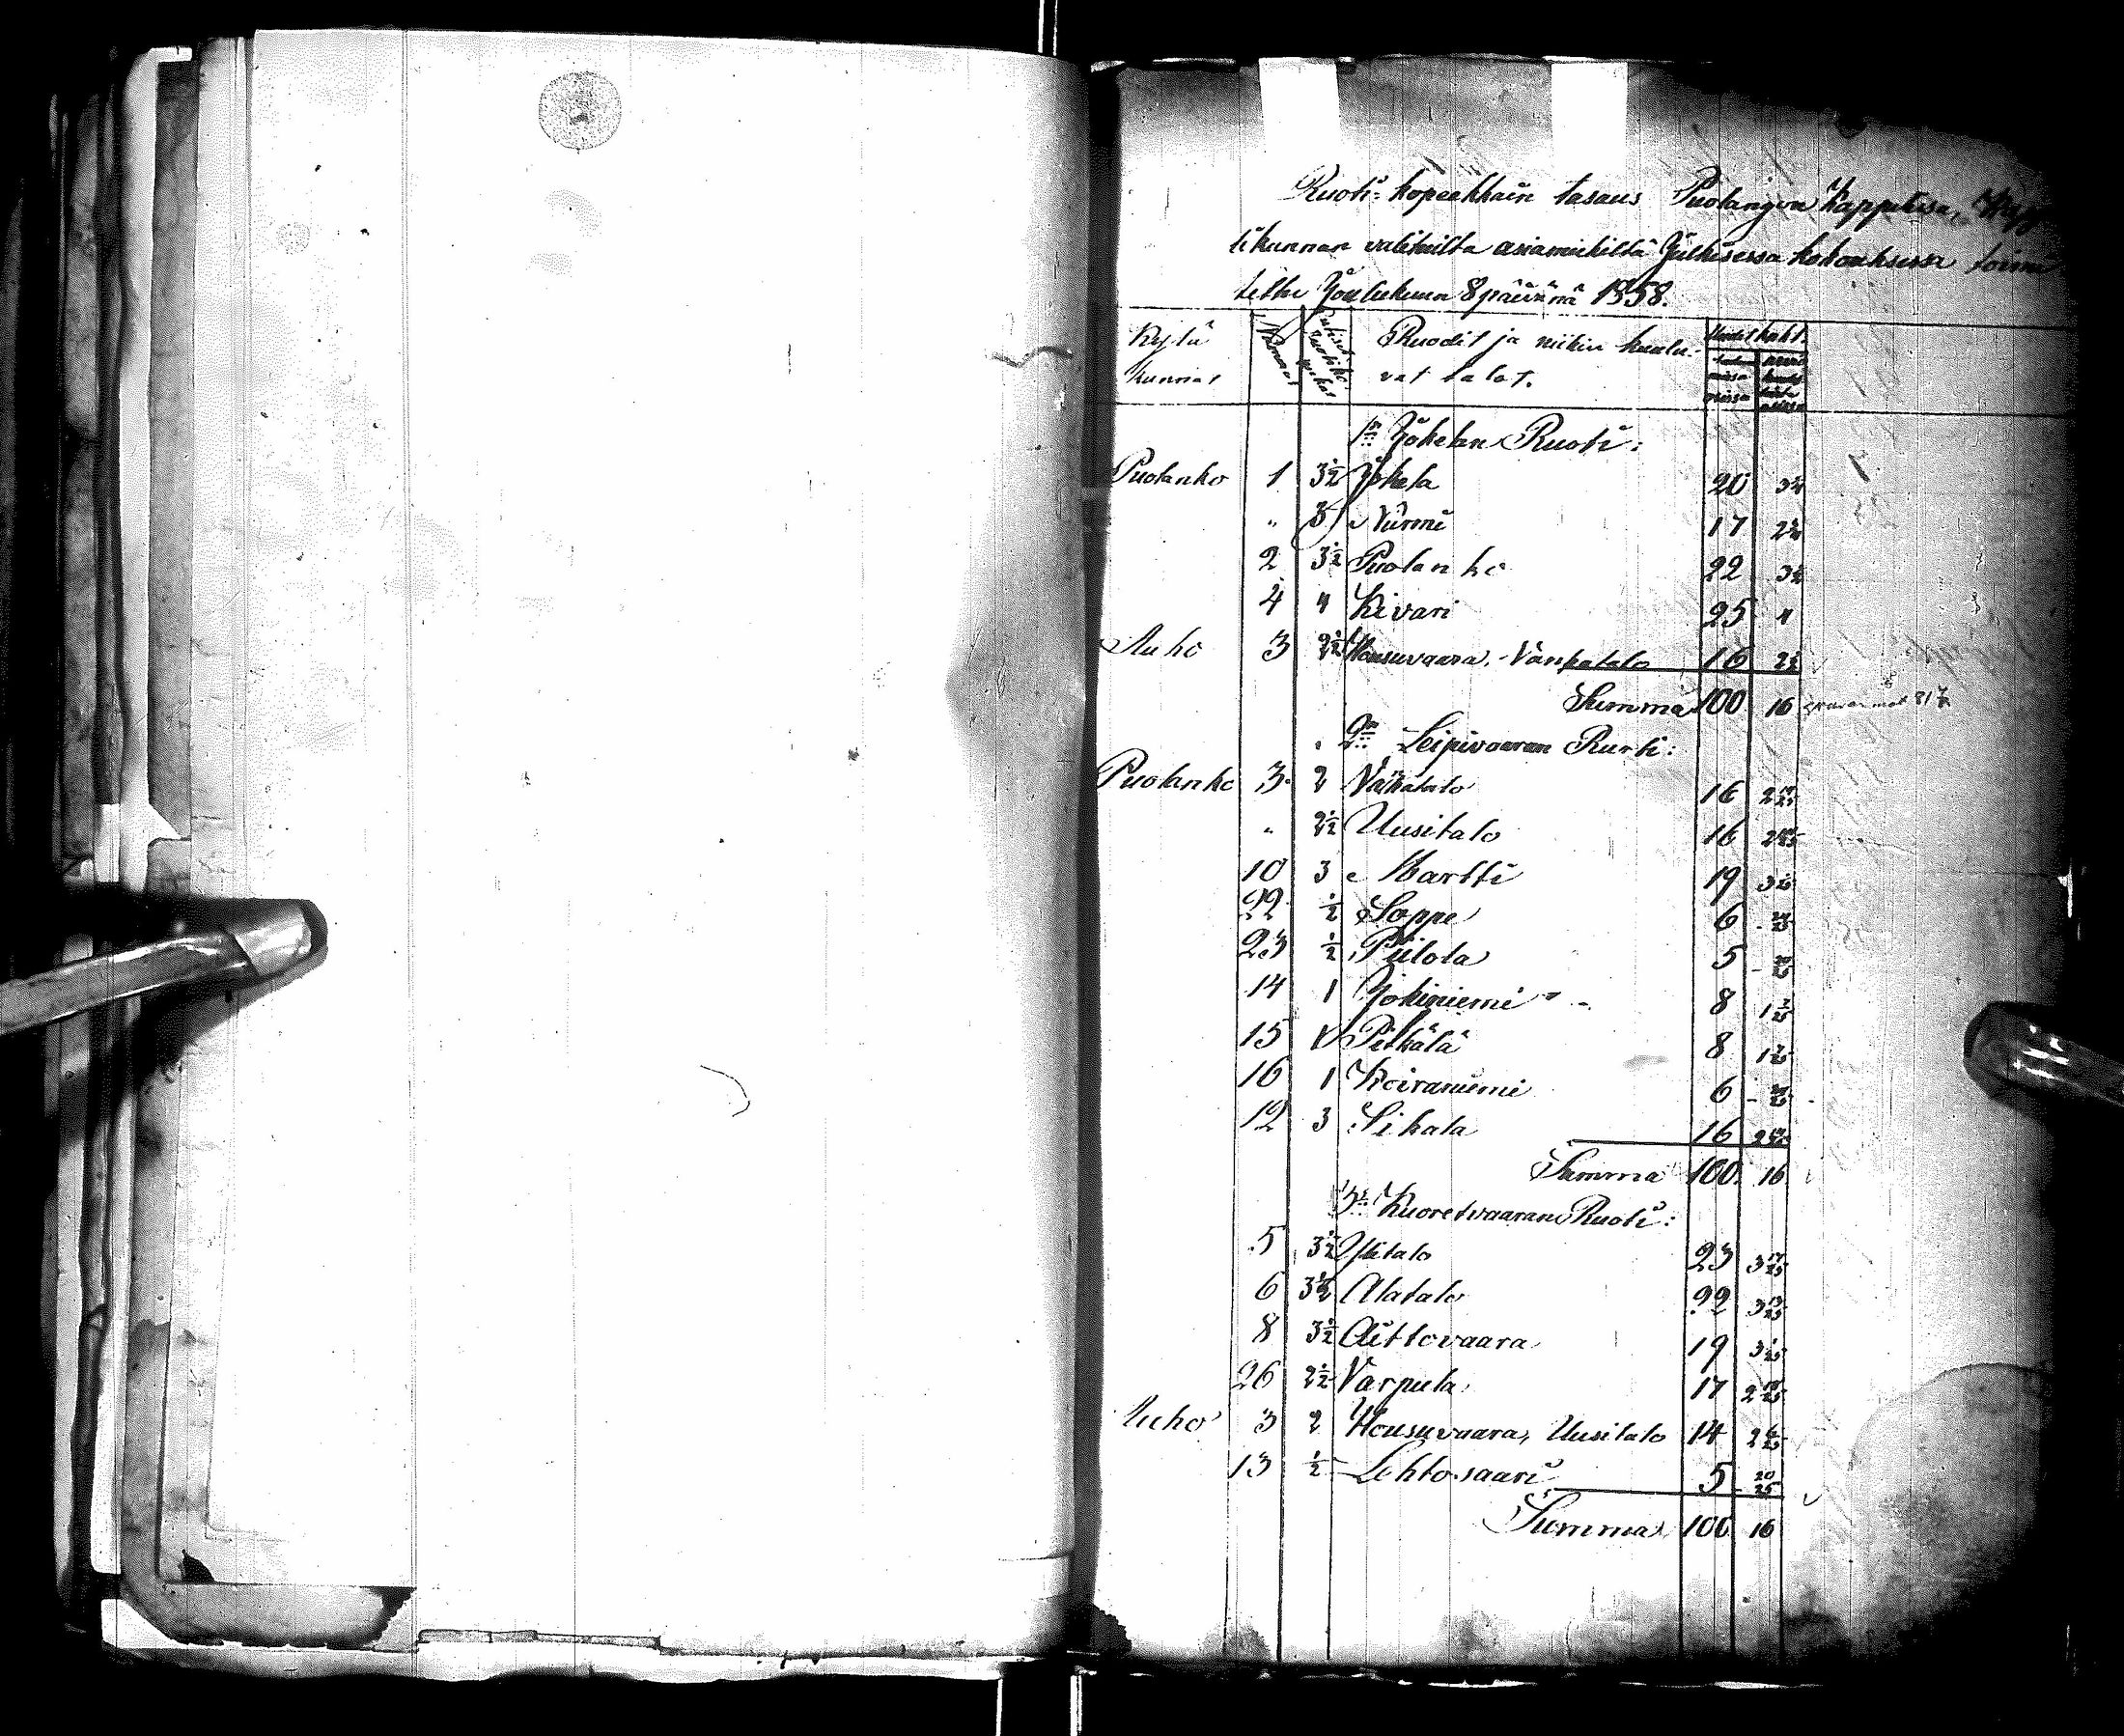 Ruoti-kopeekkain tasaus Puolangon Kappelissa,
tikunnan valituilta asiamiehiltä Julkisessa kokouksessa toimi
tettu Joulukuun 8 päivänä 1858.
Kylä kunnat Numerot Ruodit ja niihin kuulu- vat talot. Uudet koht.
1:n Jokelan Ruoti:
Puolanko 1 3½ Jokela 20 3¼
" 3 Nurmi 17 2¾
2 3½ Puolanko 22 3½
4 4 Kivari 25 4
Auho 3 2½ Housuvaara, Vanhatalo 16 2½
Summa 100 16
2:n Leipivaaran Ruoti:
Puolanko 3 2 Vanhatalo 16 2 14/25
" 2½ Uusitalo 16 2 14/25
10 3 Martti 19 3 1/25
22 ½ Soppe 6 - 24/25
23 ½ Piilola 5 - 20/25
14 1 Jokiniemi 8 1 7/25
15 1 Pitkälä 8 1 7/25
16 1 Koiraniemi 6 - 24/25
12 3 Sikala 16 2 14/25
Summa 100 16
3:s Kuoretvaaran Ruoti:
5 3½ Ylitalo 23 3 17/25
6 3½ Alatalo 22 3 13/25
8 3½ Aittovaara 19 3 1/25
26 2½ Varpula 17 2 18/25
Auho 3 2 Housuvaara, Uusitalo 14 2 6/25
13 ½ Lehtosaari 5 - 20/25
Summa 100 16